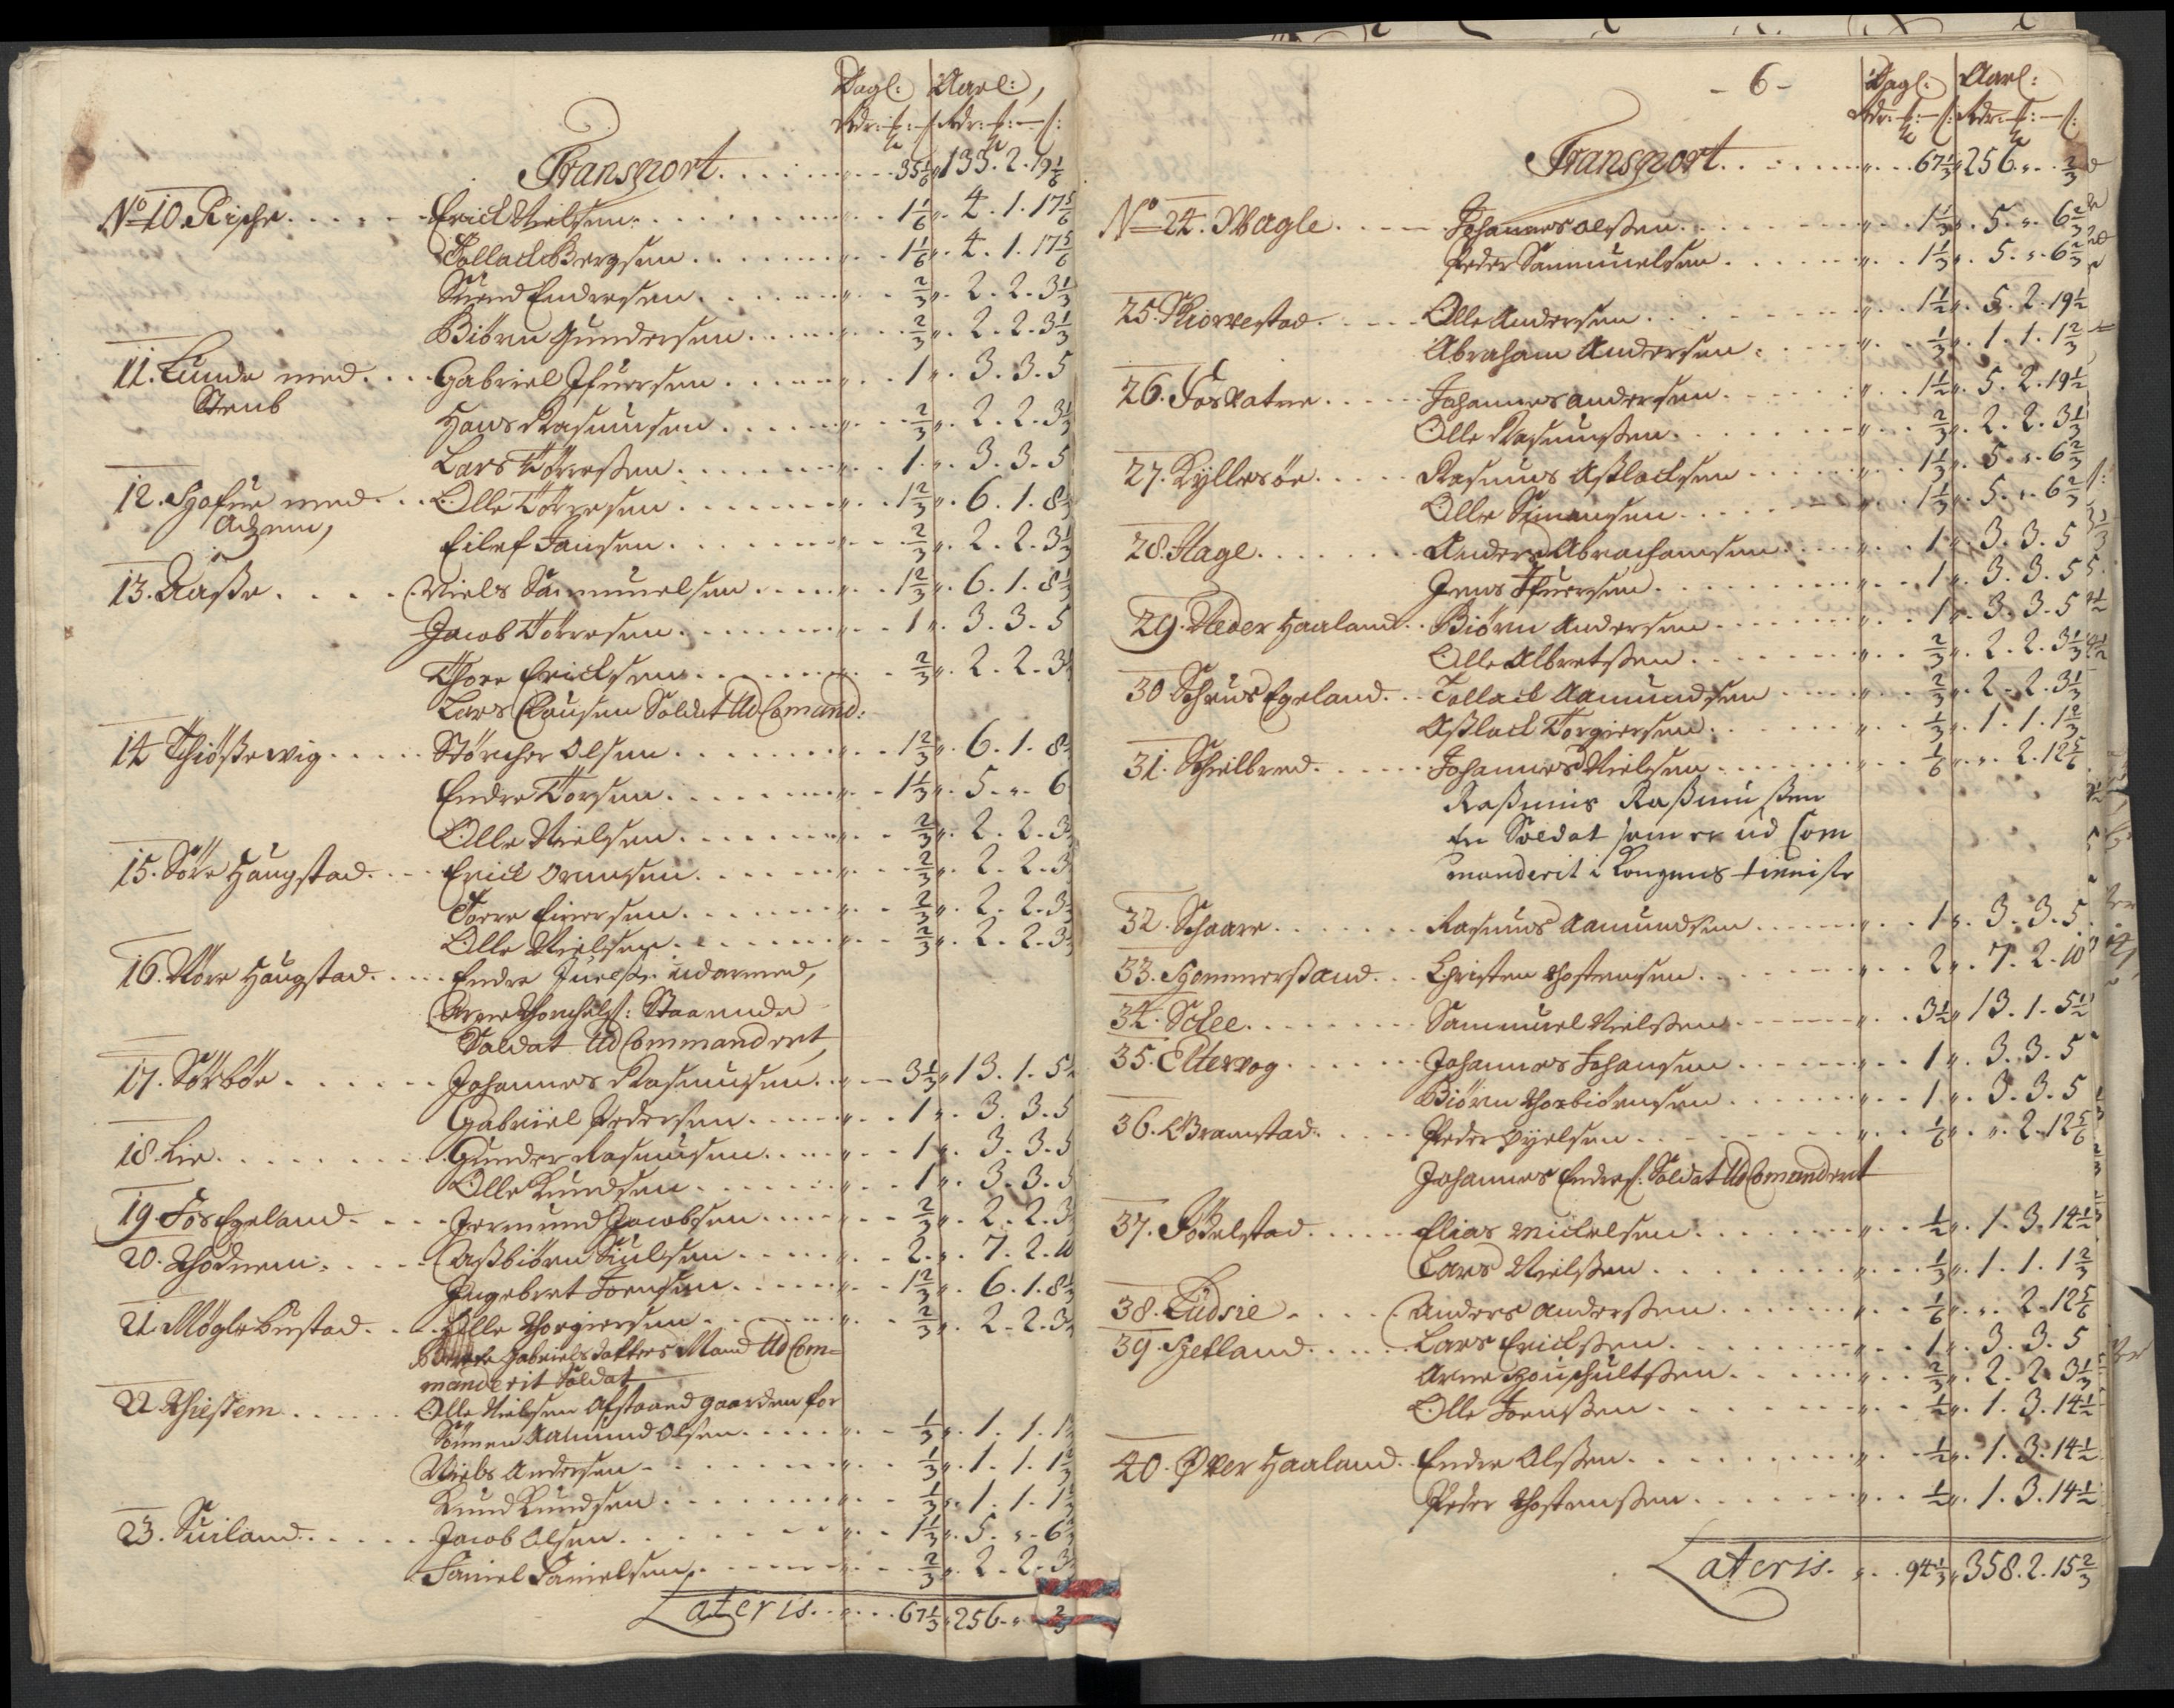 Dagl: Aarl:
Rdr: ʒ: ſ Rdr: ʒ: ſ:
Transport . . . . 35 1/6 133. 2. 19 1/6
No 10. Rische . . . . Erick Nielsen . . . . 1 1/6 4. 1. 17 5/6
Tollack Bergsen . . . . 1 1/6 4. 1. 17 5/6
Svend Endersen . . . . 2/3 2. 2. 3 1/3
Biörn Gundersen . . . . 2/3 2. 2. 3 1/3
11. Lunde med . . . Gabriel Ifuersen . . . . 1 3. 3. 5
Stenb
Hans Rasmusen . . . . 2/3 2. 2. 3 1/3
Lars Törresen . . . . 1 3. 3. 5
12. Hafue med . . Olle Törresen . . . . 1 2/3 6. 1. 8 1/3
Eilef Jansen . . . . 2/3 2. 2. 3 1/3
13. Aasse . . . . Niels Sammuelsen . . . . 1 2/3 6. 1. 8 1/3
Jacob Törresen . . . . 1 3. 3. 5
Thore Ericksen . . . . 2/3 2. 2. 3
Lars Clausen Soldat Ud Comand:
14 Thiössevig . . . . Störcher Olsen . . . . 1 2/3 6. 1. 8
Endre Torsen . . . . 1 1/3 5. „. 6
Olle Nielsen . . . . 2/3 2. 2. 3
15. Söre Haugstad . . . Erick Ormsen . . . . 2/3 2. 2. 3
Torre Eiversen . . . . 2/3 2. 2. 3
Olle Nielsen . . . . 2/3 2. 2. 3
16. Nöre Haugstad . . . Endre Juelss: udarmed,
Soldat Ud Commandert
17. Sörböe . . . . Johannes Rasmusen . . 3 1/3 13. 1. 5
Gabriel Pedersen . . . . 1 3. 3. 5
18. Lie . . . . Gunder Rasmusen . . . . 1 3. 3. 5
Olle Kundsen . . . . 1 3. 3. 5
19. Fos Egeland . . . . Jermund Jacobsen . . . . 2/3 2. 2. 3
20. Thodnem . . . . Assbiörn Siulsen . . . . 2 7. 2. 10
Ingebret Joensen . . . . 1 2/3 6. 1. 8 1/3
21. Mögle bustad . . . Olle Thorgiersen . . . . 2/3 2. 2. 3
Gabriels datters Mand Ud Com=
manderit Soldat
22 Thiestem . . . . Olle Nielsen Afstaaed gaarden for
Sönnen Aamund Olsen . . . . 1/3 1. 1. 1
Niels Andersen . . . . 1/3 1. 1. 1 2/3
Knud Knudsen . . . . 1/3 1. 1. 1 2/3
23. Suiland . . . . Jacob Olsen . . . . 1 1/3 5. „. 6 2/3
Daniel Danielsen . . . . 2/3 2. 2. 3
Lateris . . . . 67 1/3 256. „. 2/3
- 6 - Dagl: Aarl:
Rdr: ʒ: ſ: Rdr: ʒ: ſ:
Transport . . . . 67 1/3 256. „. 2/3
No 24. Wagle . . . Johannes Olssen . . . . 1 1/3 5. „. 6 2/3
Peder Sammuelsen . . . . 1 1/3 5. „. 6 2/3
25. Skiørrestad . . . . Olle Andersen . . . . 1 1/2 5. 2. 19 1/2
Abraham Andersen . . . . 1/3 1. 1. 1 2/3
26. Fosvatne . . . . Johannes Andersen . . . . 1 1/2 5. 2. 19 1/2
Olle Rasmussen . . . . 2/3 2. 2. 3 1/3
27. Kyllesöe . . . . Rasmus Asslacksen . . . . 1 1/3 5. „. 6 2/3
Olle Simensen . . . . 1 1/3 5. „. 6 2/3
28. Hage . . . . Anders Abrahamsen . . . . 1 3. 3. 5
Jens Ifuersen . . . . 1 3. 3. 5
29. Neder Haaland . . Biörn Andersen . . . . 1 3. 3. 5
Olle Albretssen . . . . 2/3 2. 2. 3 1/3
30 Schrus Egeland . . Tollack Aamundsen . . . . 2/3 2. 2. 3 1/3
Asslack Torgiersen . . . . 1/3 1. 1. 1 2/3
31. Schielbred . . . . Johannes Nielsen . . . . 1/6 „. 2. 12 5/6
Rassmus Rassmussen
En Soldat som er ud Com
manderit i Kongens tienniste
32. Schaare . . . . Rasmus Aamundsen . . . . 1 3. 3. 5
33. Hommersand . . . Christen Thostensen . . . . 2 7. 2. 10
34. Schee . . . . Sammuel Nielssen . . . . 3 1/2 13. 1. 5 1/2
35. Eltervog . . . . Johannes Johansen . . . . 1 3. 3. 5
Biörn Thorbiörnsen . . . . 1 3. 3. 5
36. Bramstad . . . . Peder Oyelsen . . . . 1/6 „. 2. 12 5/6
Johannes Enders: Soldat Ud Comandert
37. Födelstad . . . . Elias Mickelsen . . . . 1/2 1. 3. 14 1/2
Lars Nielssen . . . . 1/3 1. 1. 1 2/3
38. Ludsie . . . . Anders Anderssen . . . . 1/6 „. 2. 12 5/6
39. Hetland . . . . Lars Erickssen . . . . 1 3. 3. 5
Arne Houschultssen . . . . 2/3 2. 2. 3 1/3
Olle Joenssen . . . . 1/2 1. 3. 14 1/2
40. Øver Haaland . Endre Olssen . . . . 1/2 1. 3. 14 1/2
Peder Thostenssen . . . . 1/2 1. 3. 14 1/2
Lateris . . . 94 1/3 358. 2. 15 2/3